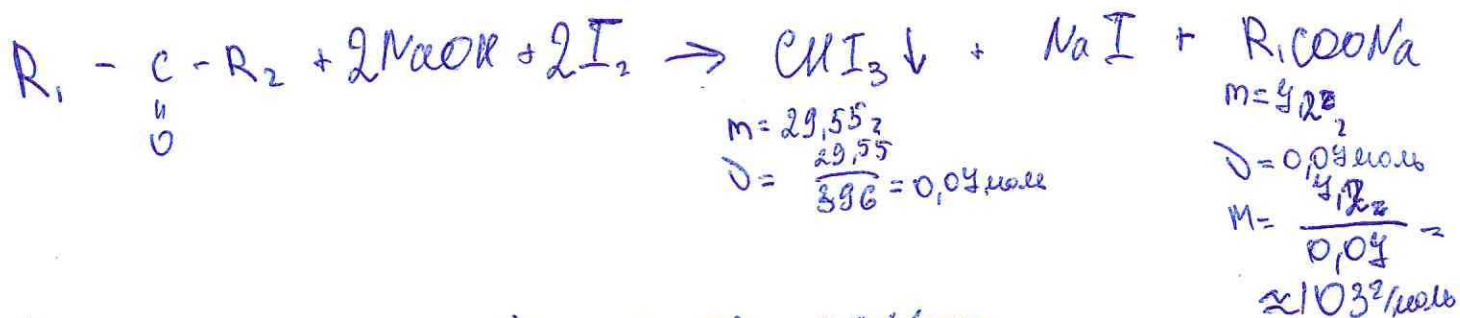 R₁ - C - R₂ + 2NaOH + 2I₂ → CHI₃↓ + NaI + R₁COONa
||
O
m = 29,55г
ν = 29,55/396 = 0,07 моль
m = 7,2г
ν = 0,07 моль
M = 7,2г/0,07 =
≈ 103г/моль